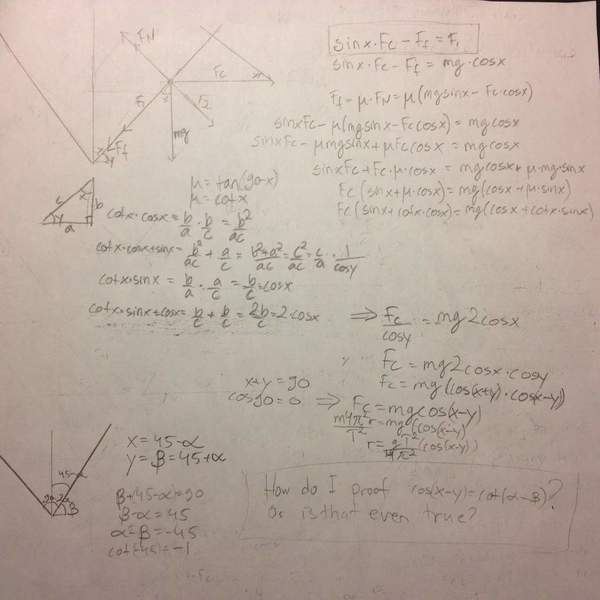 sinx·Fc - Ff = F1
sinx·Fc - Ff = mg·cosx
Ff = μ·FN = μ(mgsinx - Fc cosx)
sinxFc - μ(mgsinx - Fc cosx) = mgcosx
sinxFc - μmgsinx + μFc cosx = mgcosx
sinxFc + Fc·μ·cosx = mgcosx + μ·mg·sinx
Fc(sinx + μ·cosx) = mg(cosx + μ·sinx)
Fc(sinx + cotx·cosx) = mg(cosx + cotx·sinx)
FN
Fc
x
F1
F2
Ff
mg
μ = tan(90-x)
μ = cotx
c
x
b
y
a
cotx·cosx = b/a · b/c = b²/ac
cotx·cosx + sinx = b²/ac + a/c = b²+a²/ac = c²/ac = c/a = 1/cosy
cotx·sinx = b/a · a/c = b/c = cosx
cotx·sinx + cosx = b/c + b/c = 2b/c = 2·cosx
⇒ Fc/cosy = mg2cosx
Fc = mg2cosx·cosy
Fc = mg(cos(x+y)·cos(x-y))
x+y = 90
cos90 = 0
⇒ Fc = mgcos(x-y)
m4π²r/T² = mg(cos(x-y))
r = gT²/4π² (cos(x-y))
45-α
2α
2α
β
x = 45-α
y = β = 45+α
β+(45-α) = 90
β-α = 45
α-β = -45
cot(-45) = -1
How do I proof cos(x-y) = cot(α-β)?
Or is that even true?